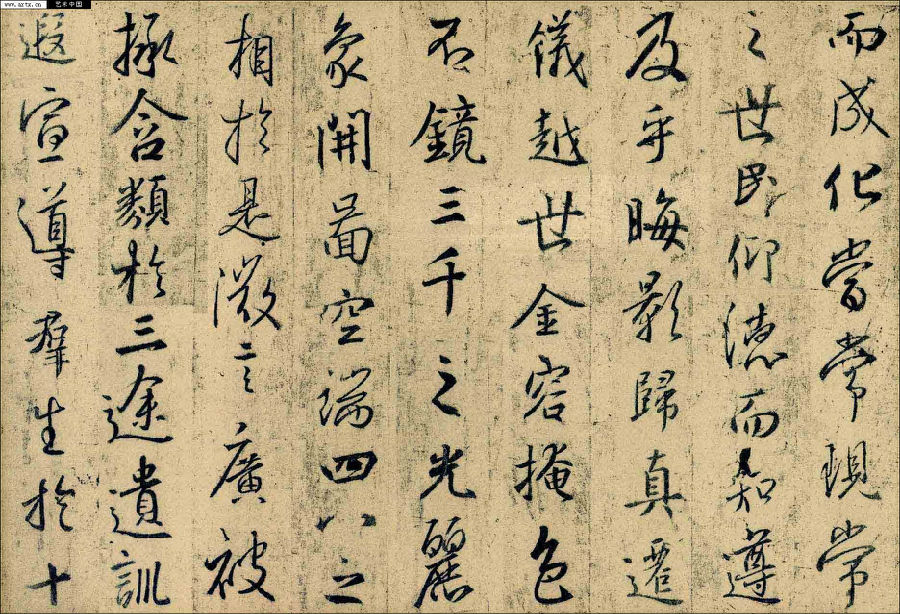 www.artx.cn 艺术中国
而成化當常現常
之世民仰德而知遵
及乎晦影歸真遷
儀越世金容掩色
不鏡三千之光麗
象開圖空端四八之
相於是微言廣被
拯含類於三途遺訓
遐宣導羣生於十